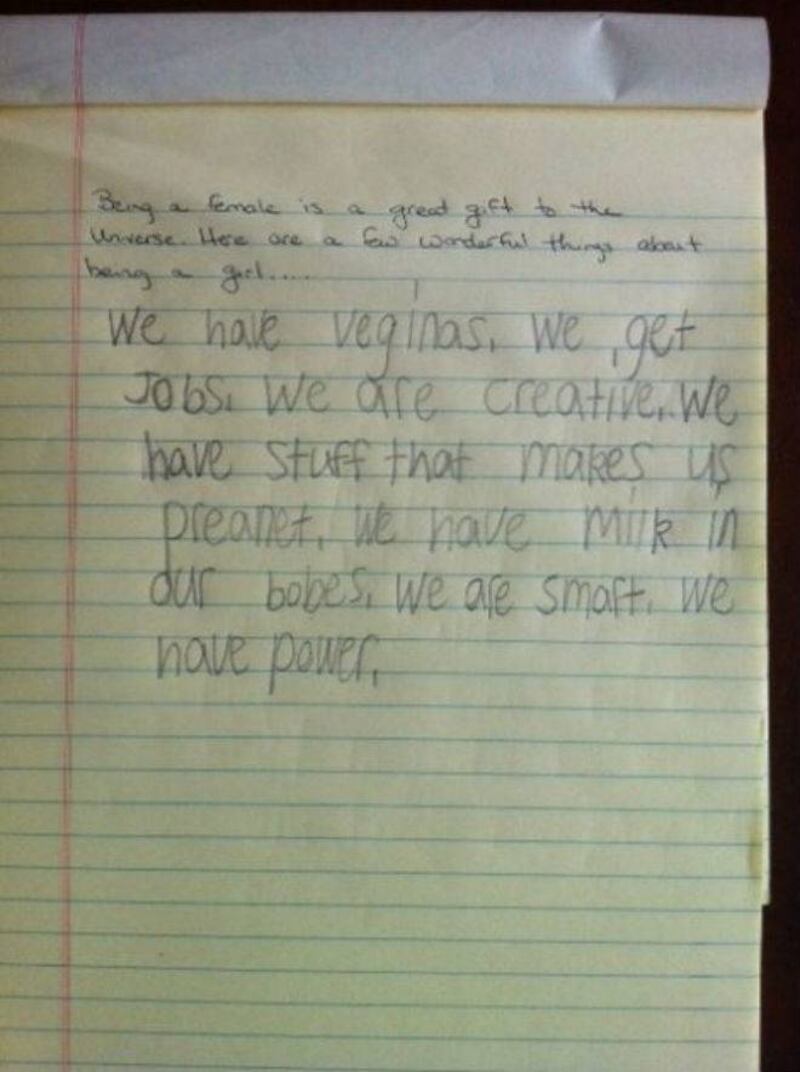 Being a female is a great gift to the
Universe. Here are a few wonderful things about
being a girl.....
We have veginas. We get
Jobs. We are creative. We
have stuff that makes us
preanet. We have milk in
our bobes. We are smart. We
have power.